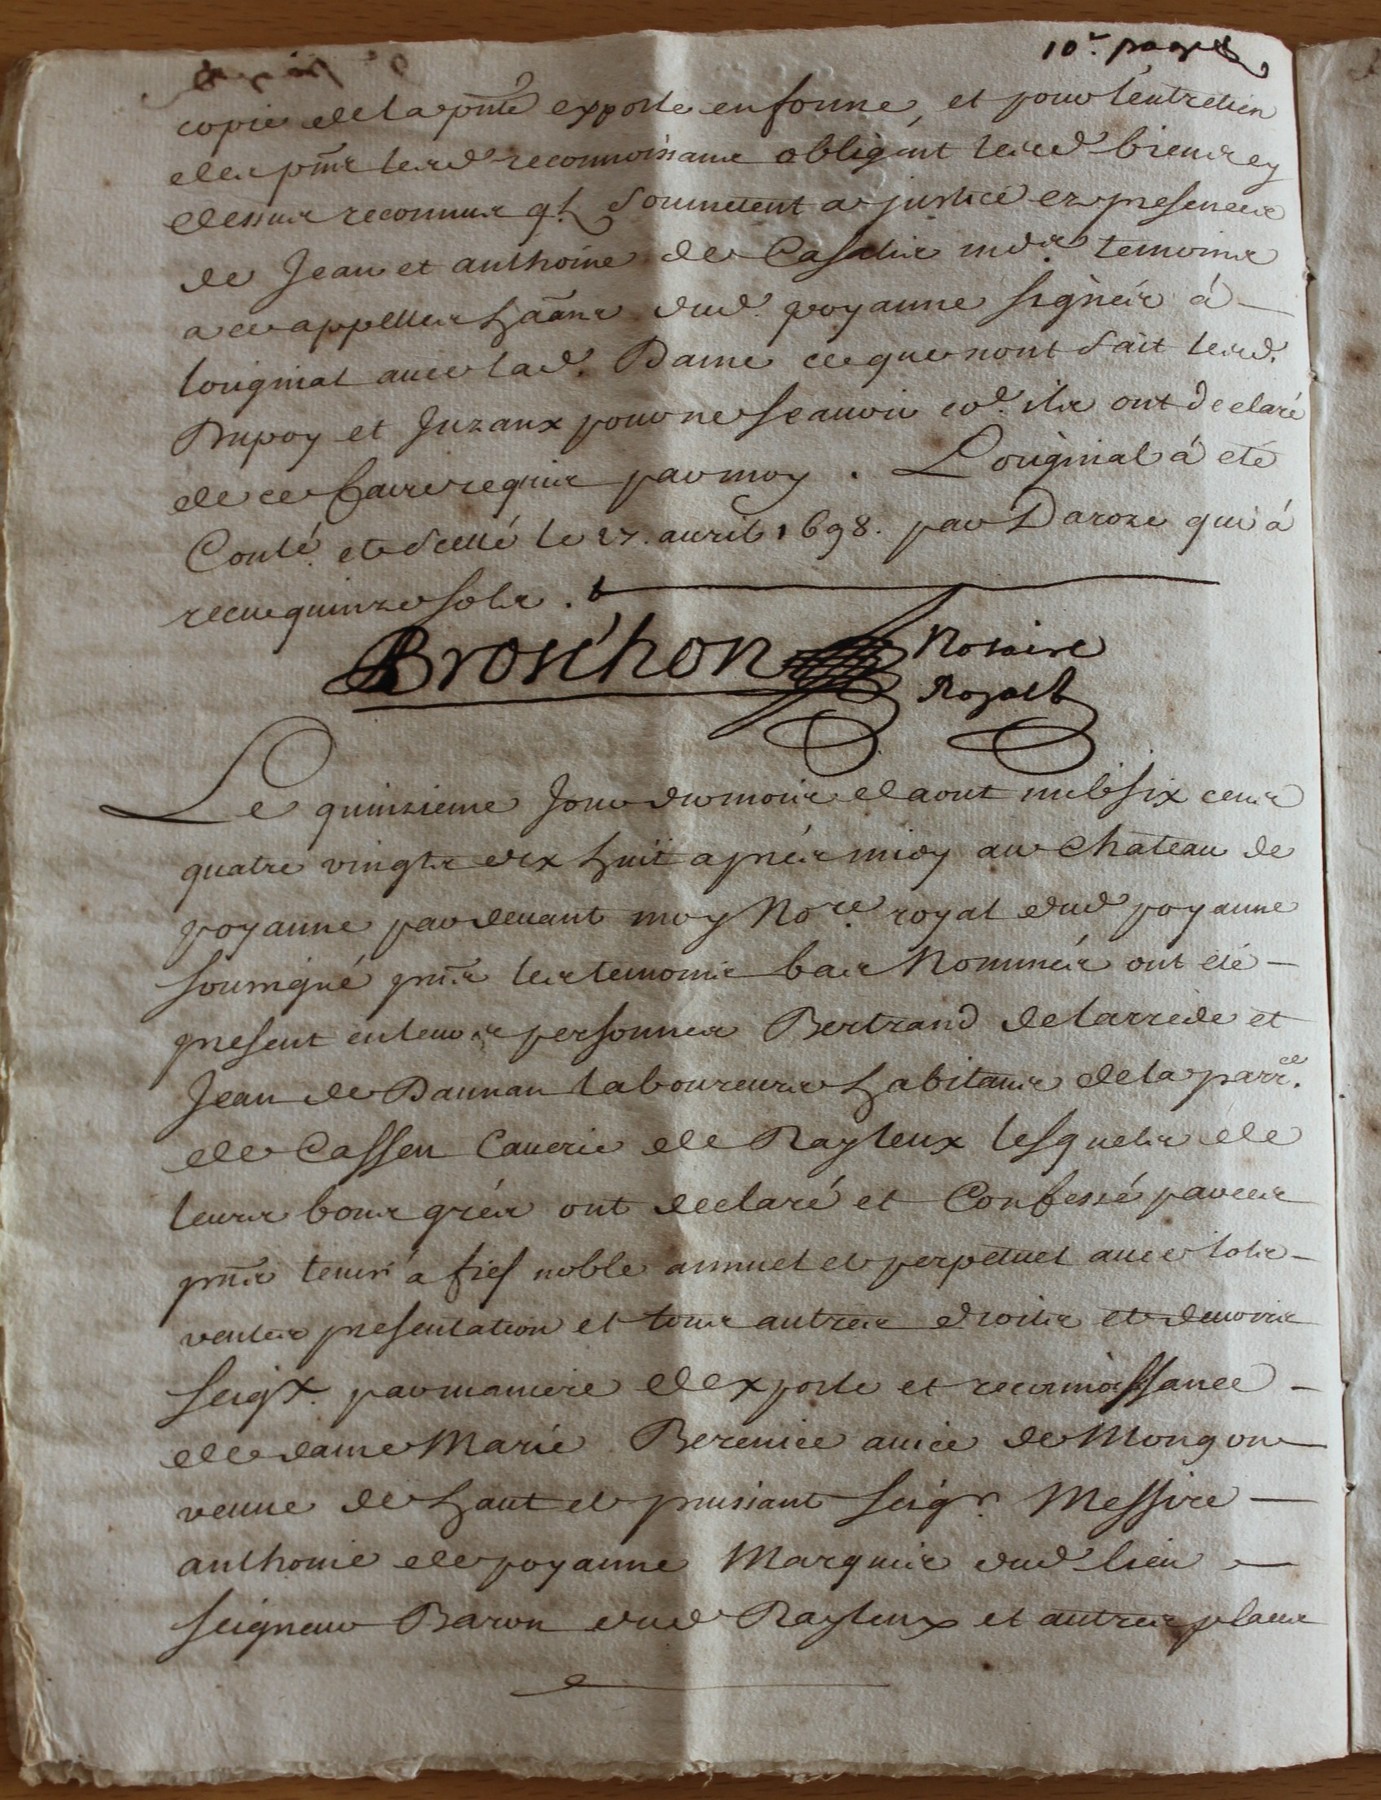 10e. page
copie de la pnte exporle en forme, et pour l'entretien
des pnts lesd reconnoissans obligent lesd biens cy
dessus reconnus ql soumettent a justice ez presences
de Jean et anthoine de Casalis mds temoins
a ce appelles haans dud. poyanne signés á
loriginal avec lad. Dame ce que nont fait lesd.
Dupoy et Juzanx pour ne scavoir co.e ils ont declaré
de ce faire requis par moy. L'original á eté
Conlé. et scellé le 27. avril 1698. par Daroze qui á
receu quinze sols.
Brosthon Notaire
Royal
Le quinzieme Jour du mois daout mil six cens
quatre vingts dix huit aprés midy au chateau de
poyanne par devant moy Nore. royal dud poyanne
soussigné pnts les temoins bas Nommés ont été
present en leurs personnes Bertrand de larrede et
Jean de Daunan laboureurs habitans de la parrce.
de Cassen Caverie de Payleux lesquels de
leurs bons grés ont declaré et Confessé par ces
pnts tenir á fief noble annuel et perpetuel avec lots
ventes presentation et tous autres droits et devoirs
seigx. par maniere dexporle et reconnoissance
de dame Marie Berenice avice de Mongon
veuve de haut et puissant seigr. Messire
anthoine de poyanne Marquis dud lieu
seigneur Baron dud Payleux et autres places